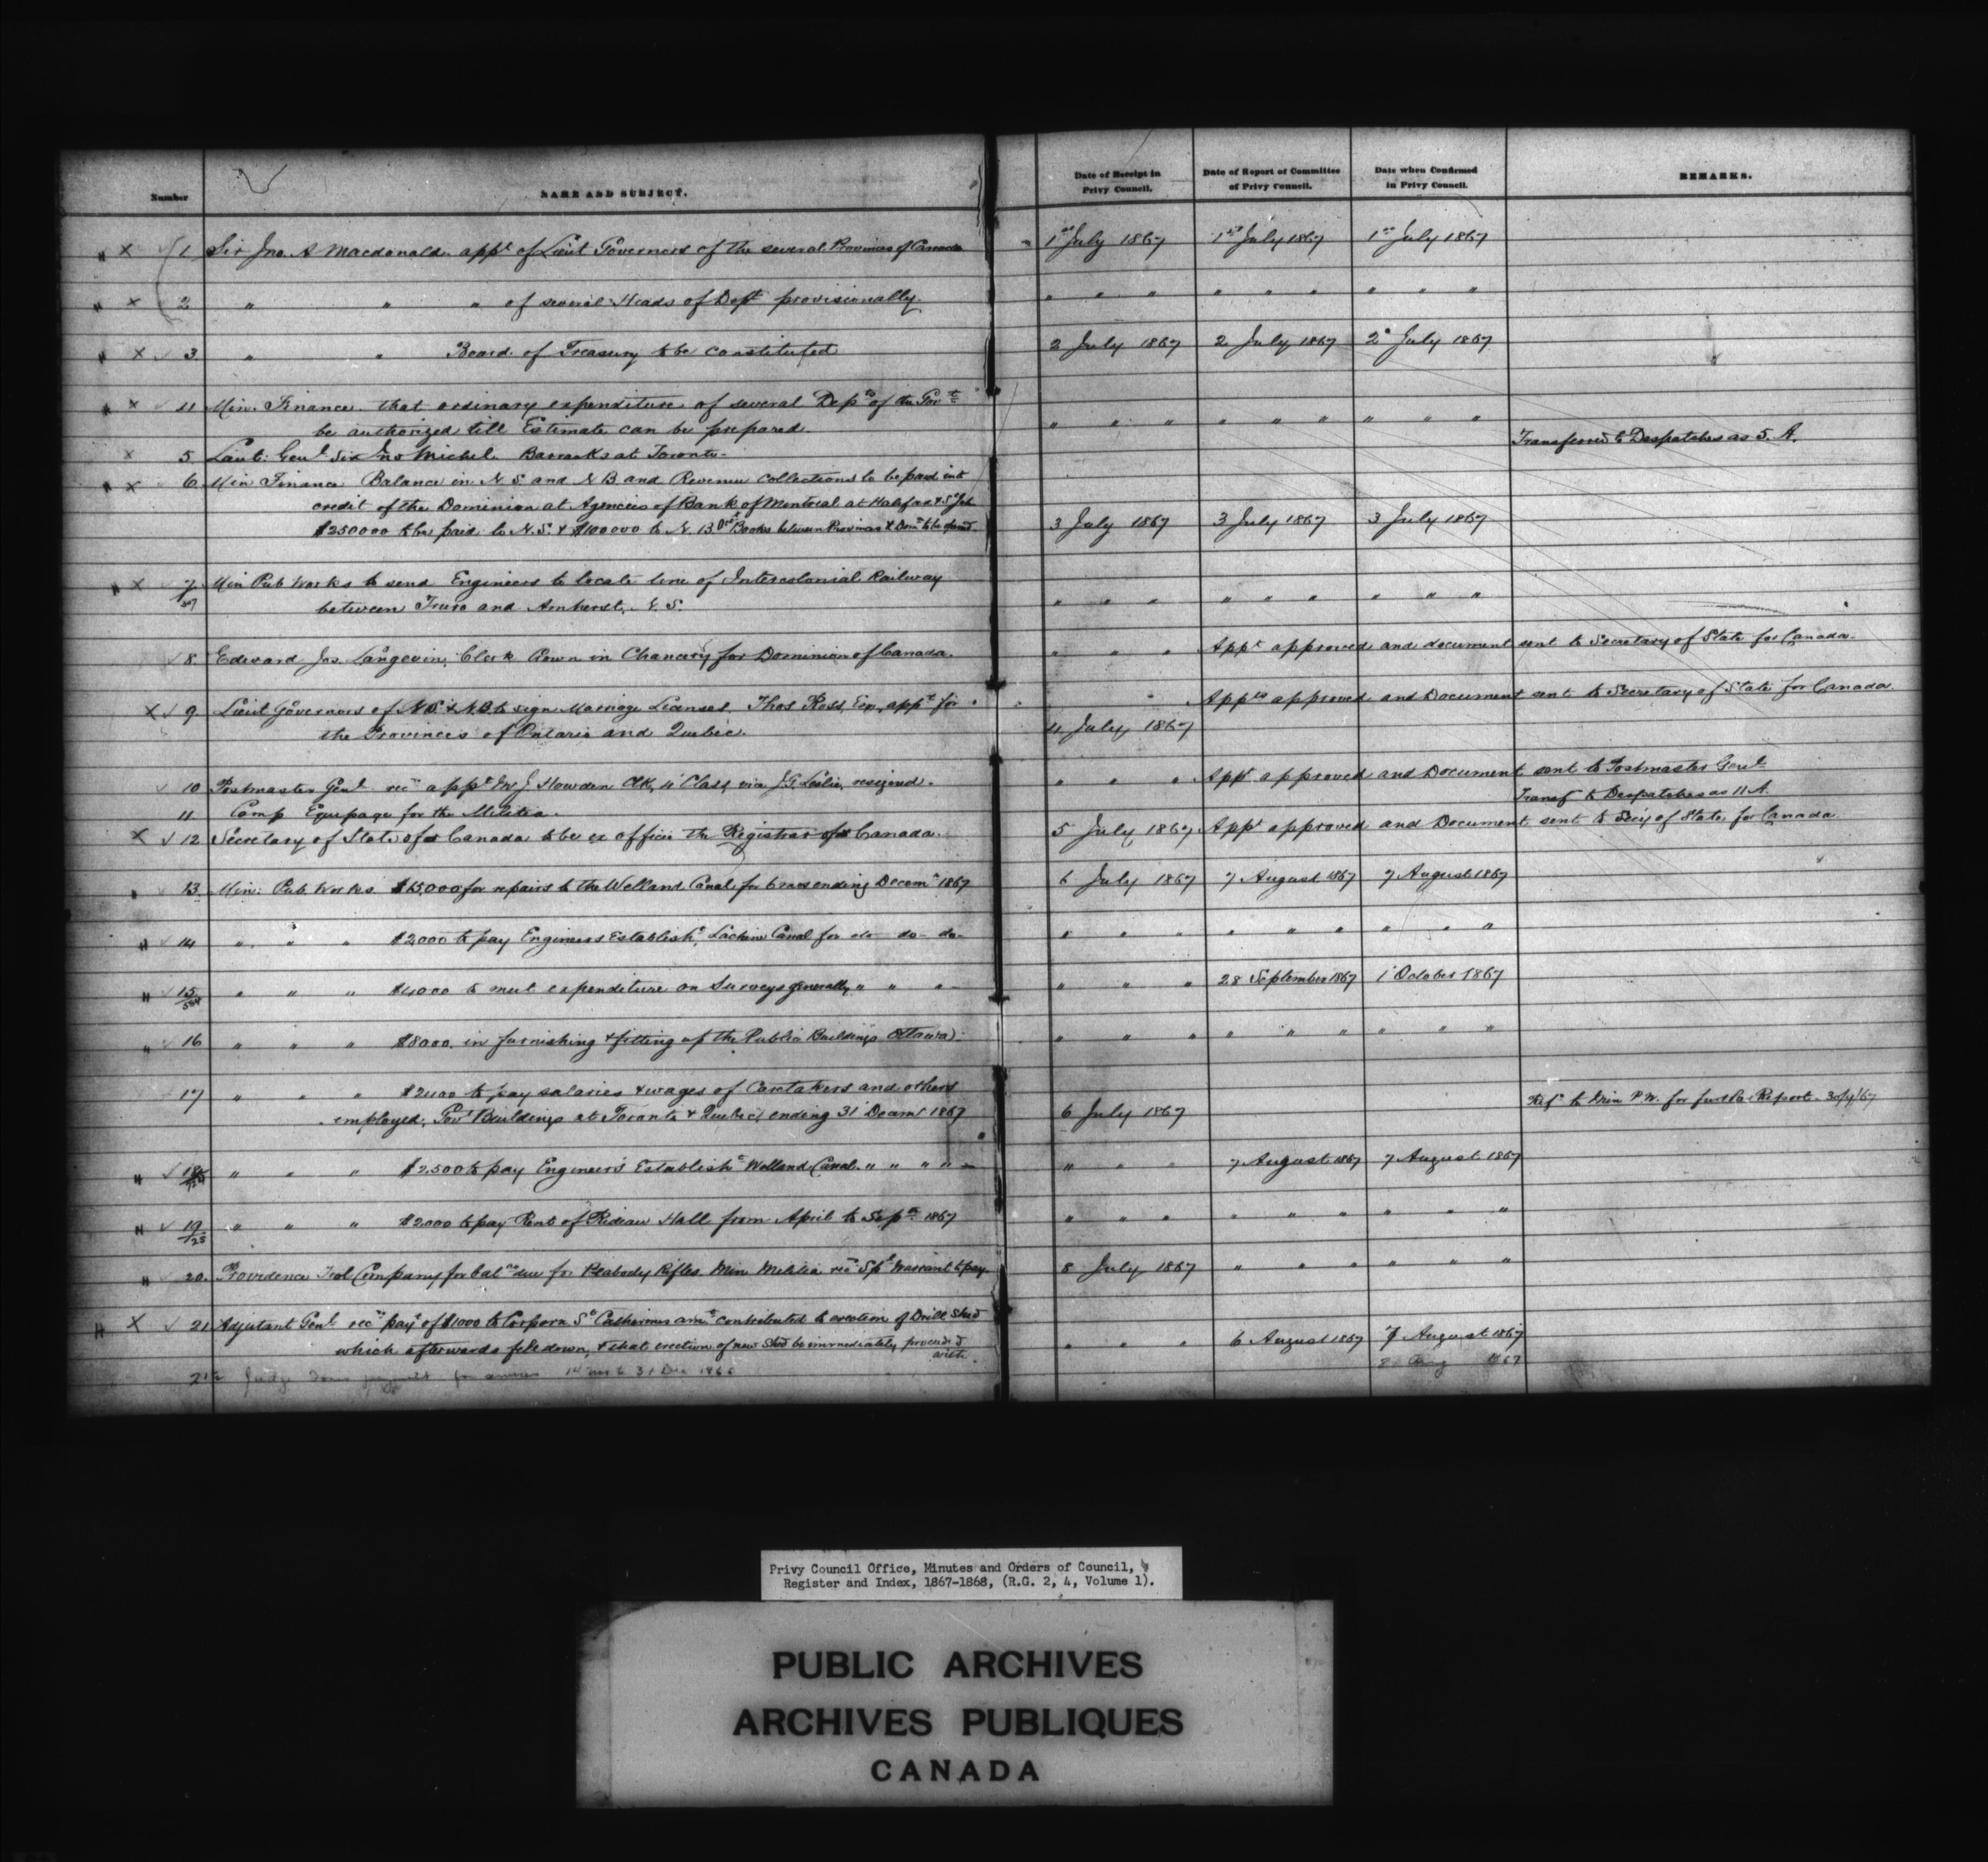 Number
NAME AND SUBJECT.
Date of Receipt in
Privy Council.
Date of Report of Committee
of Privy Council.
Date when Confirmed
in Privy Council.
REMARKS.
X 1 Sir Jno. A Macdonald appt of Lieut Governors of the several Provinces of Canada 1st July 1867 1st July 1867 1st July 1867
X 2 " " " of several Heads of Dept provisionally " " " " " " " " "
X 3 " " Board of Treasury to be constituted 2 July 1867 2 July 1867 2 July 1867
X 4 Min. Finance that ordinary expenditure of several Depts of the Govt
be authorized till Estimate can be prepared. " " " " " " " " "
X 5 Lieut. Genl Sir Jno Michel Barracks at Toronto. Transferred to Despatches as 5. A.
X 6 Min Finance Balance in N.S. and N B and Revenue Collections to be paid into
credit of the Dominion at Agencies of Bank of Montreal at Halifax & St Joh
$250000 to be paid to N.S. & $100000 to N.B. Books between Provinces & Domn to be opend 3 July 1867 3 July 1867 3 July 1867
X 7 Min Pub Works to send Engineers to locate line of Intercolonial Railway
between Truro and Amherst, N.S. " " " " " " " " "
8 Edward Jos. Langevin, Clerk Crown in Chancery for Dominion of Canada. " " " Appt approved and document sent to Secretary of State for Canada.
X 9 Lieut Governors of N.S. & N.B. to sign Marriage Licenses, Thos Ross, Esq. appt for " Appts approved and Document sent to Secretary of State for Canada.
the Provinces of Ontario and Quebec. 4 July 1867
10 Postmaster Genl recs appt Mr J Howden Clk, 4 Class, vice J.G. Leslie, resigned. " " " Appt approved and Document sent to Postmaster Genl
11 Camp Equipage for the Militia. Transfd to Despatches as 11 A.
X 12 Secretary of State for Canada to be ex officio the Registrar of Canada. 5 July 1867 Appt approved and Document sent to Secy of State for Canada
13 Min. Pub Works $15,000 for repairs to the Welland Canal for 6 mos ending Decemr 1867 6 July 1867 7 August 1867 7 August 1867
14 " " " $2000 to pay Engineers Establisht Lachine Canal for do- do- do- " " " " " " " " "
15 " " " $4000 to meet expenditure on Surveys generally " " " " " " 28 September 1867 1 October 1867
16 " " " $8000. in furnishing & fitting up the Public Buildings Ottawa. " " " " " " " " "
17 " " " $2400 to pay salaries & wages of Caretakers and others
employed, Govt Buildings at Toronto & Quebec, ending 31 Decemr 1867 6 July 1867 Refd to Min P.W. for further Report
18 " " " $2,500 to pay Engineers Establisht Welland Canal " " " " " " " 7 August 1867 7 August 1867
19 " " " $2000 to pay Rent of Rideau Hall from April to Septr 1867 " " " " " " " " "
20. Providence Tool Company for balce due for Peabody Rifles Min Militia recs Spl Warrant to pay. 8 July 1867 " " " " " "
X 21 Adjutant Genl recs payt of $1000 to Corporn St Catherines amt contributed to erection of Drill Shed
which afterwards fell down, & that erection of new Shed be immediately proceeded
with. " " " 6 August 1867 7 August 1867
21½ Judge 31 Dec
Aug 1867
Privy Council Office, Minutes and Orders of Council,
Register and Index, 1867-1868, (R.G. 2, 4, Volume 1).
PUBLIC ARCHIVES
ARCHIVES PUBLIQUES
CANADA